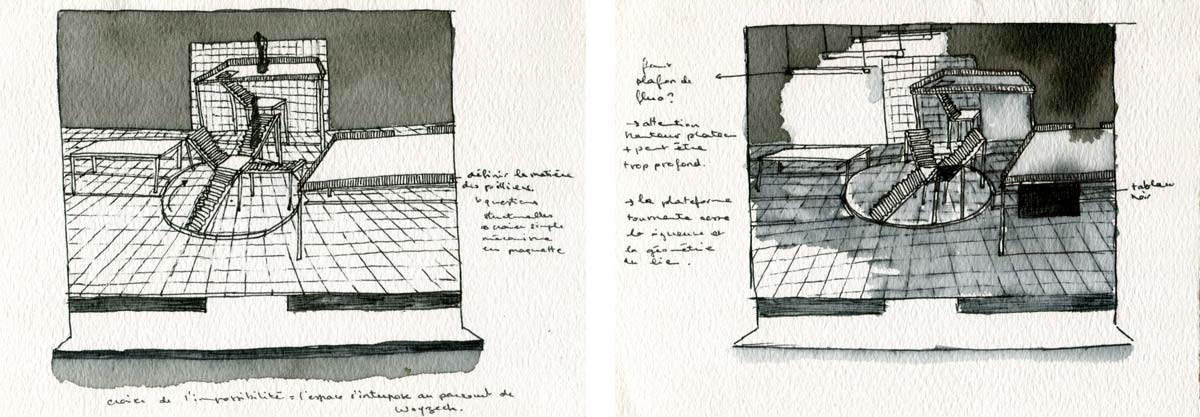 définir la matière
des pilliers
↳ questions
structurelles
créer simple
mécanisme
en maquette
créer de l'impossibilité = l'espace s'interpose au parcourt de
Woyzeck.
plafon de
fluo?
→ attention
hauteur plateau
+ peut être
trop profond.
→ la plateforme
tournante
la rigueur et
la géométrie
du lieu.
tableau
noir